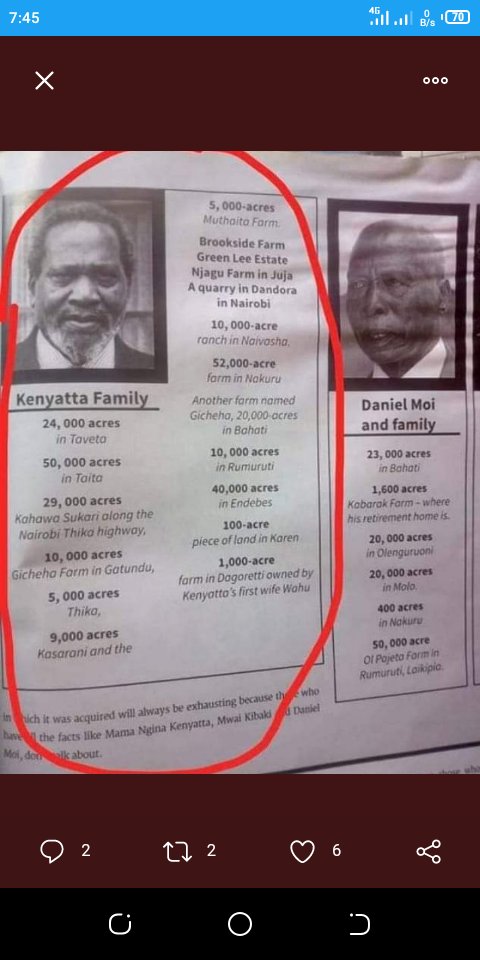 7:45
4G
0
B/s
70
Kenyatta Family
24, 000 acres
in Taveta
50, 000 acres
in Taita
29, 000 acres
Kahawa Sukari along the
Nairobi Thika highway,
10, 000 acres
Gicheha Farm in Gatundu,
5, 000 acres
Thika,
9,000 acres
Kasarani and the
5, 000-acres
Muthaita Farm.
Brookside Farm
Green Lee Estate
Njagu Farm in Juja
A quarry in Dandora
in Nairobi
10, 000-acre
ranch in Naivasha.
52,000-acre
farm in Nakuru
Another farm named
Gicheha, 20,000-acres
in Bahati
10, 000 acres
in Rumuruti
40,000 acres
in Endebes
100-acre
piece of land in Karen
1,000-acre
farm in Dagoretti owned by
Kenyatta's first wife Wahu
Daniel Moi
and family
23, 000 acres
in Bahati
1,600 acres
Kabarak Farm – where
his retirement home is.
20, 000 acres
in Olenguruoni
20, 000 acres
in Molo.
400 acres
in Nakuru
50, 000 acre
Ol Pajeta Farm in
Rumuruti, Laikipia.
in which it was acquired will always be exhausting because who
have the facts like Mama Ngina Kenyatta, Mwai Kibaki Daniel
Moi, about.
2
2
6